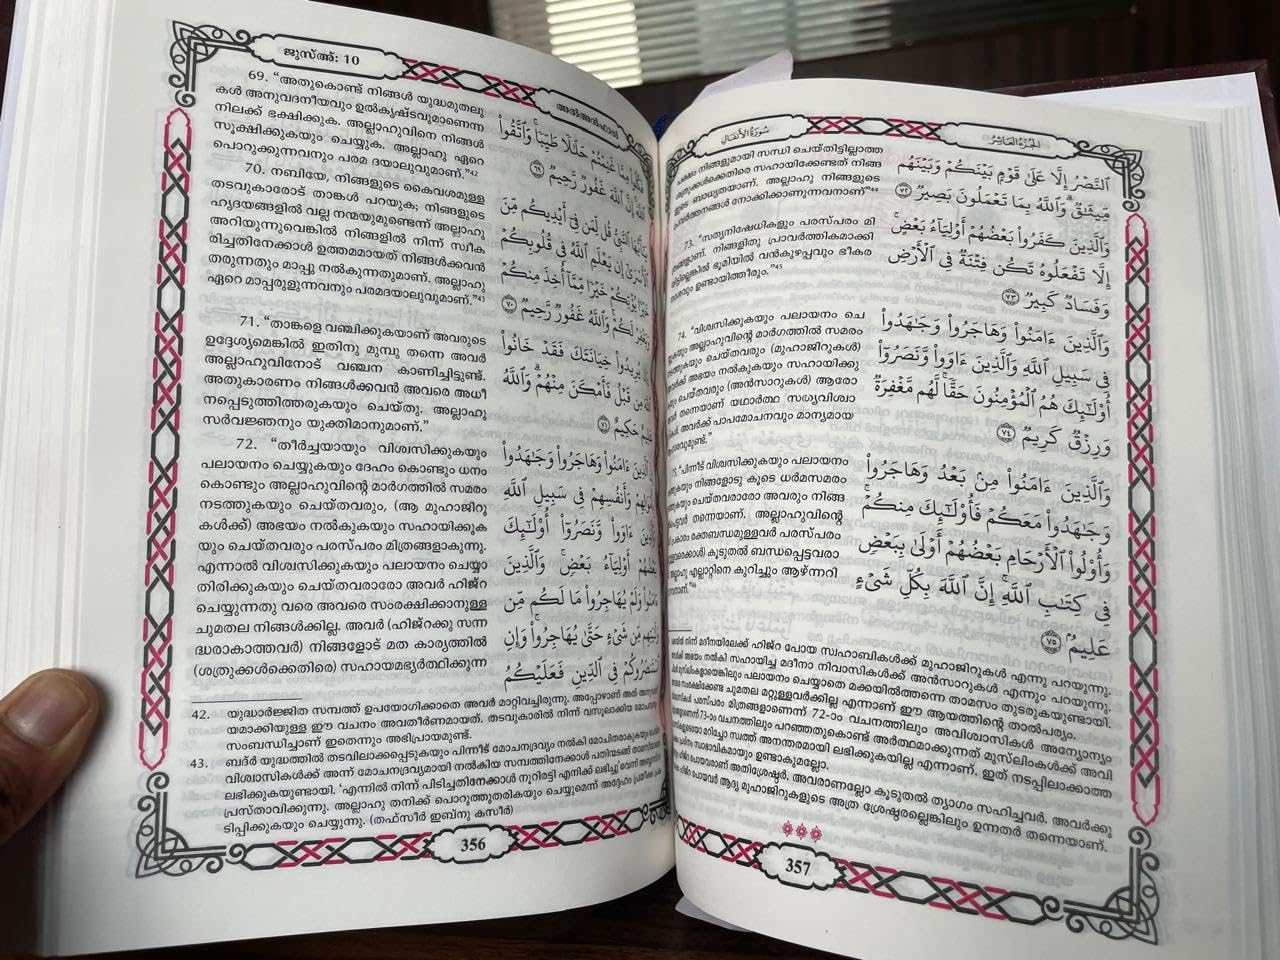 ജുസ്അ്: 10
അൽഅൻഫാൽ
69. “അതുകൊണ്ട് നിങ്ങൾ യുദ്ധമുതലു
കൾ അനുവദനീയവും ഉൽകൃഷ്ടവുമാണെന്ന
നിലക്ക് ഭക്ഷിക്കുക. അല്ലാഹുവിനെ നിങ്ങൾ
സൂക്ഷിക്കുകയും ചെയ്യുക. അല്ലാഹു ഏറെ
പൊറുക്കുന്നവനും പരമ ദയാലുവുമാണ്.”42
70. നബിയേ, നിങ്ങളുടെ കൈവശമുള്ള
തടവുകാരോട് താങ്കൾ പറയുക; നിങ്ങളുടെ
ഹൃദയങ്ങളിൽ വല്ല നന്മയുമുണ്ടെന്ന് അല്ലാഹു
അറിയുന്നുവെങ്കിൽ നിങ്ങളിൽ നിന്ന് സ്വീക
രിച്ചതിനേക്കാൾ ഉത്തമമായത് നിങ്ങൾക്കവൻ
തരുന്നതും മാപ്പു നൽകുന്നതുമാണ്. അല്ലാഹു
ഏറെ മാപ്പരുളുന്നവനും പരമദയാലുവുമാണ്.”43
71. “താങ്കളെ വഞ്ചിക്കുകയാണ് അവരുടെ
ഉദ്ദേശ്യമെങ്കിൽ ഇതിനു മുമ്പു തന്നെ അവർ
അല്ലാഹുവിനോട് വഞ്ചന കാണിച്ചിട്ടുണ്ട്.
അതുകാരണം നിങ്ങൾക്കവൻ അവരെ അധീ
നപ്പെടുത്തിത്തരുകയും ചെയ്തു. അല്ലാഹു
സർവജ്ഞനും യുക്തിമാനുമാണ്.”
72. “തീർച്ചയായും വിശ്വസിക്കുകയും
പലായനം ചെയ്യുകയും ദേഹം കൊണ്ടും ധനം
കൊണ്ടും അല്ലാഹുവിന്റെ മാർഗത്തിൽ സമരം
നടത്തുകയും ചെയ്തവരും, (ആ മുഹാജിറു
കൾക്ക്) അഭയം നൽകുകയും സഹായിക്കുക
യും ചെയ്തവരും പരസ്പരം മിത്രങ്ങളാകുന്നു.
എന്നാൽ വിശ്വസിക്കുകയും പലായനം ചെയ്യാ
തിരിക്കുകയും ചെയ്തവരാരോ അവർ ഹിജ്റ
ചെയ്യുന്നതു വരെ അവരെ സംരക്ഷിക്കാനുള്ള
ചുമതല നിങ്ങൾക്കില്ല. അവർ (ഹിജ്റക്കു സന്ന
ദ്ധരാകാത്തവർ) നിങ്ങളോട് മത കാര്യത്തിൽ
(ശത്രുക്കൾക്കെതിരെ) സഹായമഭ്യർത്ഥിക്കുന്ന
فَكُلُوا۟ مِمَّا غَنِمْتُمْ حَلَٰلًا طَيِّبًا ۚ وَٱتَّقُوا۟
ٱللَّهَ ۚ إِنَّ ٱللَّهَ غَفُورٌ رَّحِيمٌ ٦٩
يَٰٓأَيُّهَا ٱلنَّبِىُّ قُل لِّمَن فِىٓ أَيْدِيكُم مِّنَ
ٱلْأَسْرَىٰٓ إِن يَعْلَمِ ٱللَّهُ فِى قُلُوبِكُمْ
خَيْرًا يُؤْتِكُمْ خَيْرًا مِّمَّآ أُخِذَ مِنكُمْ
وَيَغْفِرْ لَكُمْ ۗ وَٱللَّهُ غَفُورٌ رَّحِيمٌ ٧٠
يُرِيدُوا۟ خِيَانَتَكَ فَقَدْ خَانُوا۟
ٱللَّهَ مِن قَبْلُ فَأَمْكَنَ مِنْهُمْ ۗ وَٱللَّهُ
عَلِيمٌ حَكِيمٌ ٧١
ٱلَّذِينَ ءَامَنُوا۟ وَهَاجَرُوا۟ وَجَٰهَدُوا۟
وَأَنفُسِهِمْ فِى سَبِيلِ ٱللَّهِ
وَٱلَّذِينَ ءَاوَوا۟ وَّنَصَرُوٓا۟ أُو۟لَٰٓئِكَ
بَعْضُهُمْ أَوْلِيَآءُ بَعْضٍ ۚ وَٱلَّذِينَ
ءَامَنُوا۟ وَلَمْ يُهَاجِرُوا۟ مَا لَكُم مِّن
مِّن شَىْءٍ حَتَّىٰ يُهَاجِرُوا۟ ۚ وَإِنِ
ٱسْتَنصَرُوكُمْ فِى ٱلدِّينِ فَعَلَيْكُمُ
42. യുദ്ധാർജ്ജിത സമ്പത്ത് ഉപയോഗിക്കാതെ അവർ മാറ്റിവച്ചിരുന്നു. അപ്പോഴാണ് അത് അനുവദ
യമാക്കിയുള്ള ഈ വചനം അവതീർണമായത്. തടവുകാരിൽ നിന്ന് വസൂലാക്കിയ മോചനദ്രവ്യം
സംബന്ധിച്ചാണ് ഇതെന്നും അഭിപ്രായമുണ്ട്.
43. ബദ്ർ യുദ്ധത്തിൽ തടവിലാക്കപ്പെടുകയും പിന്നീട് മോചനദ്രവ്യം നൽകി മോചിതരാകുകയും
വിശ്വാസികൾക്ക് അന്ന് മോചനദ്രവ്യമായി നൽകിയ സമ്പത്തിനേക്കാൾ പതിന്മടങ്ങ്
ലഭിക്കുകയുണ്ടായി. ‘എന്നിൽ നിന്ന് പിടിച്ചതിനേക്കാൾ നൂറിരട്ടി എനിക്ക് ലഭിച്ചു’വെന്ന്
പ്രസ്താവിക്കുന്നു. അല്ലാഹു തനിക്ക് പൊറുത്തുതരികയും ചെയ്യുമെന്ന് അദ്ദേഹം പ്രതീക്ഷ പ്രക
ടിപ്പിക്കുകയും ചെയ്യുന്നു. (തഫ്സീർ ഇബ്നു കസീർ)
356
سُورَةُ الأَنْفَالِ
الجُزْءُ العَاشِرُ
പക്ഷം നിങ്ങളുമായി സന്ധി ചെയ്തിട്ടില്ലാത്ത
ശത്രുക്കൾക്കെതിരെ സഹായിക്കേണ്ടത് നിങ്ങ
ളുടെ ബാധ്യതയാണ്. അല്ലാഹു നിങ്ങളുടെ
പ്രവർത്തനങ്ങൾ നോക്കിക്കാണുന്നവനാണ്”44
73. “സത്യനിഷേധികളും പരസ്പരം മി
ത്രങ്ങളാണ്. നിങ്ങളിതു പ്രാവർത്തികമാക്കി
യിട്ടില്ലെങ്കിൽ ഭൂമിയിൽ വൻകുഴപ്പവും ഭീകര
നാശവും ഉണ്ടായിത്തീരും.”45
74. “വിശ്വസിക്കുകയും പലായനം ചെ
യ്യുകയും അല്ലാഹുവിന്റെ മാർഗത്തിൽ സമരം
നടത്തുകയും ചെയ്തവരും (മുഹാജിറുകൾ)
അവർക്ക് അഭയം നൽകുകയും സഹായിക്കു
കയും ചെയ്തവരും (അൻസാറുകൾ) ആരോ
അവർ തന്നെയാണ് യഥാർത്ഥ സത്യവിശ്വാ
സികൾ. അവർക്ക് പാപമോചനവും മാന്യമായ
ആഹാരവുമുണ്ട്.”
75. “പിന്നീട് വിശ്വസിക്കുകയും പലായനം
ചെയ്യുകയും നിങ്ങളോടു കൂടെ ധർമസമരം
നടത്തുകയും ചെയ്തവരാരോ അവരും നിങ്ങ
ളിൽപെട്ടവർ തന്നെയാണ്. അല്ലാഹുവിന്റെ
പ്രകാരം രക്തബന്ധമുള്ളവർ പരസ്പരം
(മറ്റുള്ളവരെക്കാൾ) കൂടുതൽ ബന്ധപ്പെട്ടവരാ
അല്ലാഹു എല്ലാറ്റിനെ കുറിച്ചും ആഴ്ന്നറി
യുന്നവനാണ്.”46
ٱلنَّصْرُ إِلَّا عَلَىٰ قَوْمٍۭ بَيْنَكُمْ وَبَيْنَهُم
مِّيثَٰقٌ ۗ وَٱللَّهُ بِمَا تَعْمَلُونَ بَصِيرٌ ٧٢
وَٱلَّذِينَ كَفَرُوا۟ بَعْضُهُمْ أَوْلِيَآءُ بَعْضٍ ۚ
إِلَّا تَفْعَلُوهُ تَكُن فِتْنَةٌ فِى ٱلْأَرْضِ
وَفَسَادٌ كَبِيرٌ ٧٣
وَٱلَّذِينَ ءَامَنُوا۟ وَهَاجَرُوا۟ وَجَٰهَدُوا۟
فِى سَبِيلِ ٱللَّهِ وَٱلَّذِينَ ءَاوَوا۟ وَّنَصَرُوٓا۟
أُو۟لَٰٓئِكَ هُمُ ٱلْمُؤْمِنُونَ حَقًّا ۚ لَّهُم مَّغْفِرَةٌ
وَرِزْقٌ كَرِيمٌ ٧٤
وَٱلَّذِينَ ءَامَنُوا۟ مِنۢ بَعْدُ وَهَاجَرُوا۟
وَجَٰهَدُوا۟ مَعَكُمْ فَأُو۟لَٰٓئِكَ مِنكُمْ ۚ
وَأُو۟لُوا۟ ٱلْأَرْحَامِ بَعْضُهُمْ أَوْلَىٰ بِبَعْضٍ
فِى كِتَٰبِ ٱللَّهِ ۗ إِنَّ ٱللَّهَ بِكُلِّ شَىْءٍ
عَلِيمٌۢ ٧٥
നിന്ന് മദീനയിലേക്ക് ഹിജ്റ പോയ സ്വഹാബികൾക്ക് മുഹാജിറുകൾ എന്നു പറയുന്നു.
അഭയം നൽകി സഹായിച്ച മദീനാ നിവാസികൾക്ക് അൻസാറുകൾ എന്നും പറയുന്നു.
മുസ്ലിംകളായെങ്കിലും പലായനം ചെയ്യാതെ മക്കയിൽത്തന്നെ താമസം തുടരുകയുണ്ടായി.
സംരക്ഷിക്കേണ്ട ചുമതല മറ്റുള്ളവർക്കില്ല എന്നാണ് ഈ ആയത്തിന്റെ താൽപര്യം.
പരസ്പരം മിത്രങ്ങളാണെന്ന് 72-ാം വചനത്തിലും അവിശ്വാസികൾ അന്യോന്യം
73-ാം വചനത്തിലും പറഞ്ഞതുകൊണ്ട് അർത്ഥമാക്കുന്നത് മുസ്ലിംകൾക്ക് അവി
മറിച്ചോ സ്വത്ത് അനന്തരമായി ലഭിക്കുകയില്ല എന്നാണ്. ഇത് നടപ്പിലാക്കാത്ത
സ്വാഭാവികമായും ഉണ്ടാകുമല്ലോ.
ഹിജ്റ പോയവരാണ് അതിശ്രേഷ്ഠർ, അവരാണല്ലോ കൂടുതൽ ത്യാഗം സഹിച്ചവർ. അവർക്കു
ഹിജ്റ പോയവർ ആദ്യ മുഹാജിറുകളുടെ അത്ര ശ്രേഷ്ഠരല്ലെങ്കിലും ഉന്നതർ തന്നെയാണ്.
357